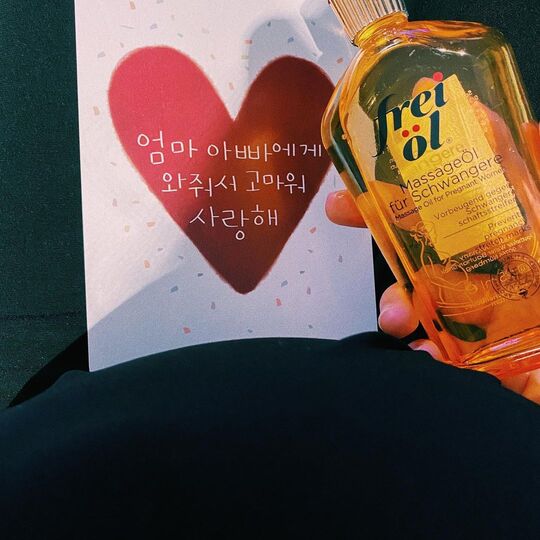 엄마 아빠에게
와줘서 고마워
사랑해
frei
öl
MassageÖl
für Schwangere
Massage Oil for Pregnant Women
Vorbeugend gegen
Schwanger-
schaftsstreifen